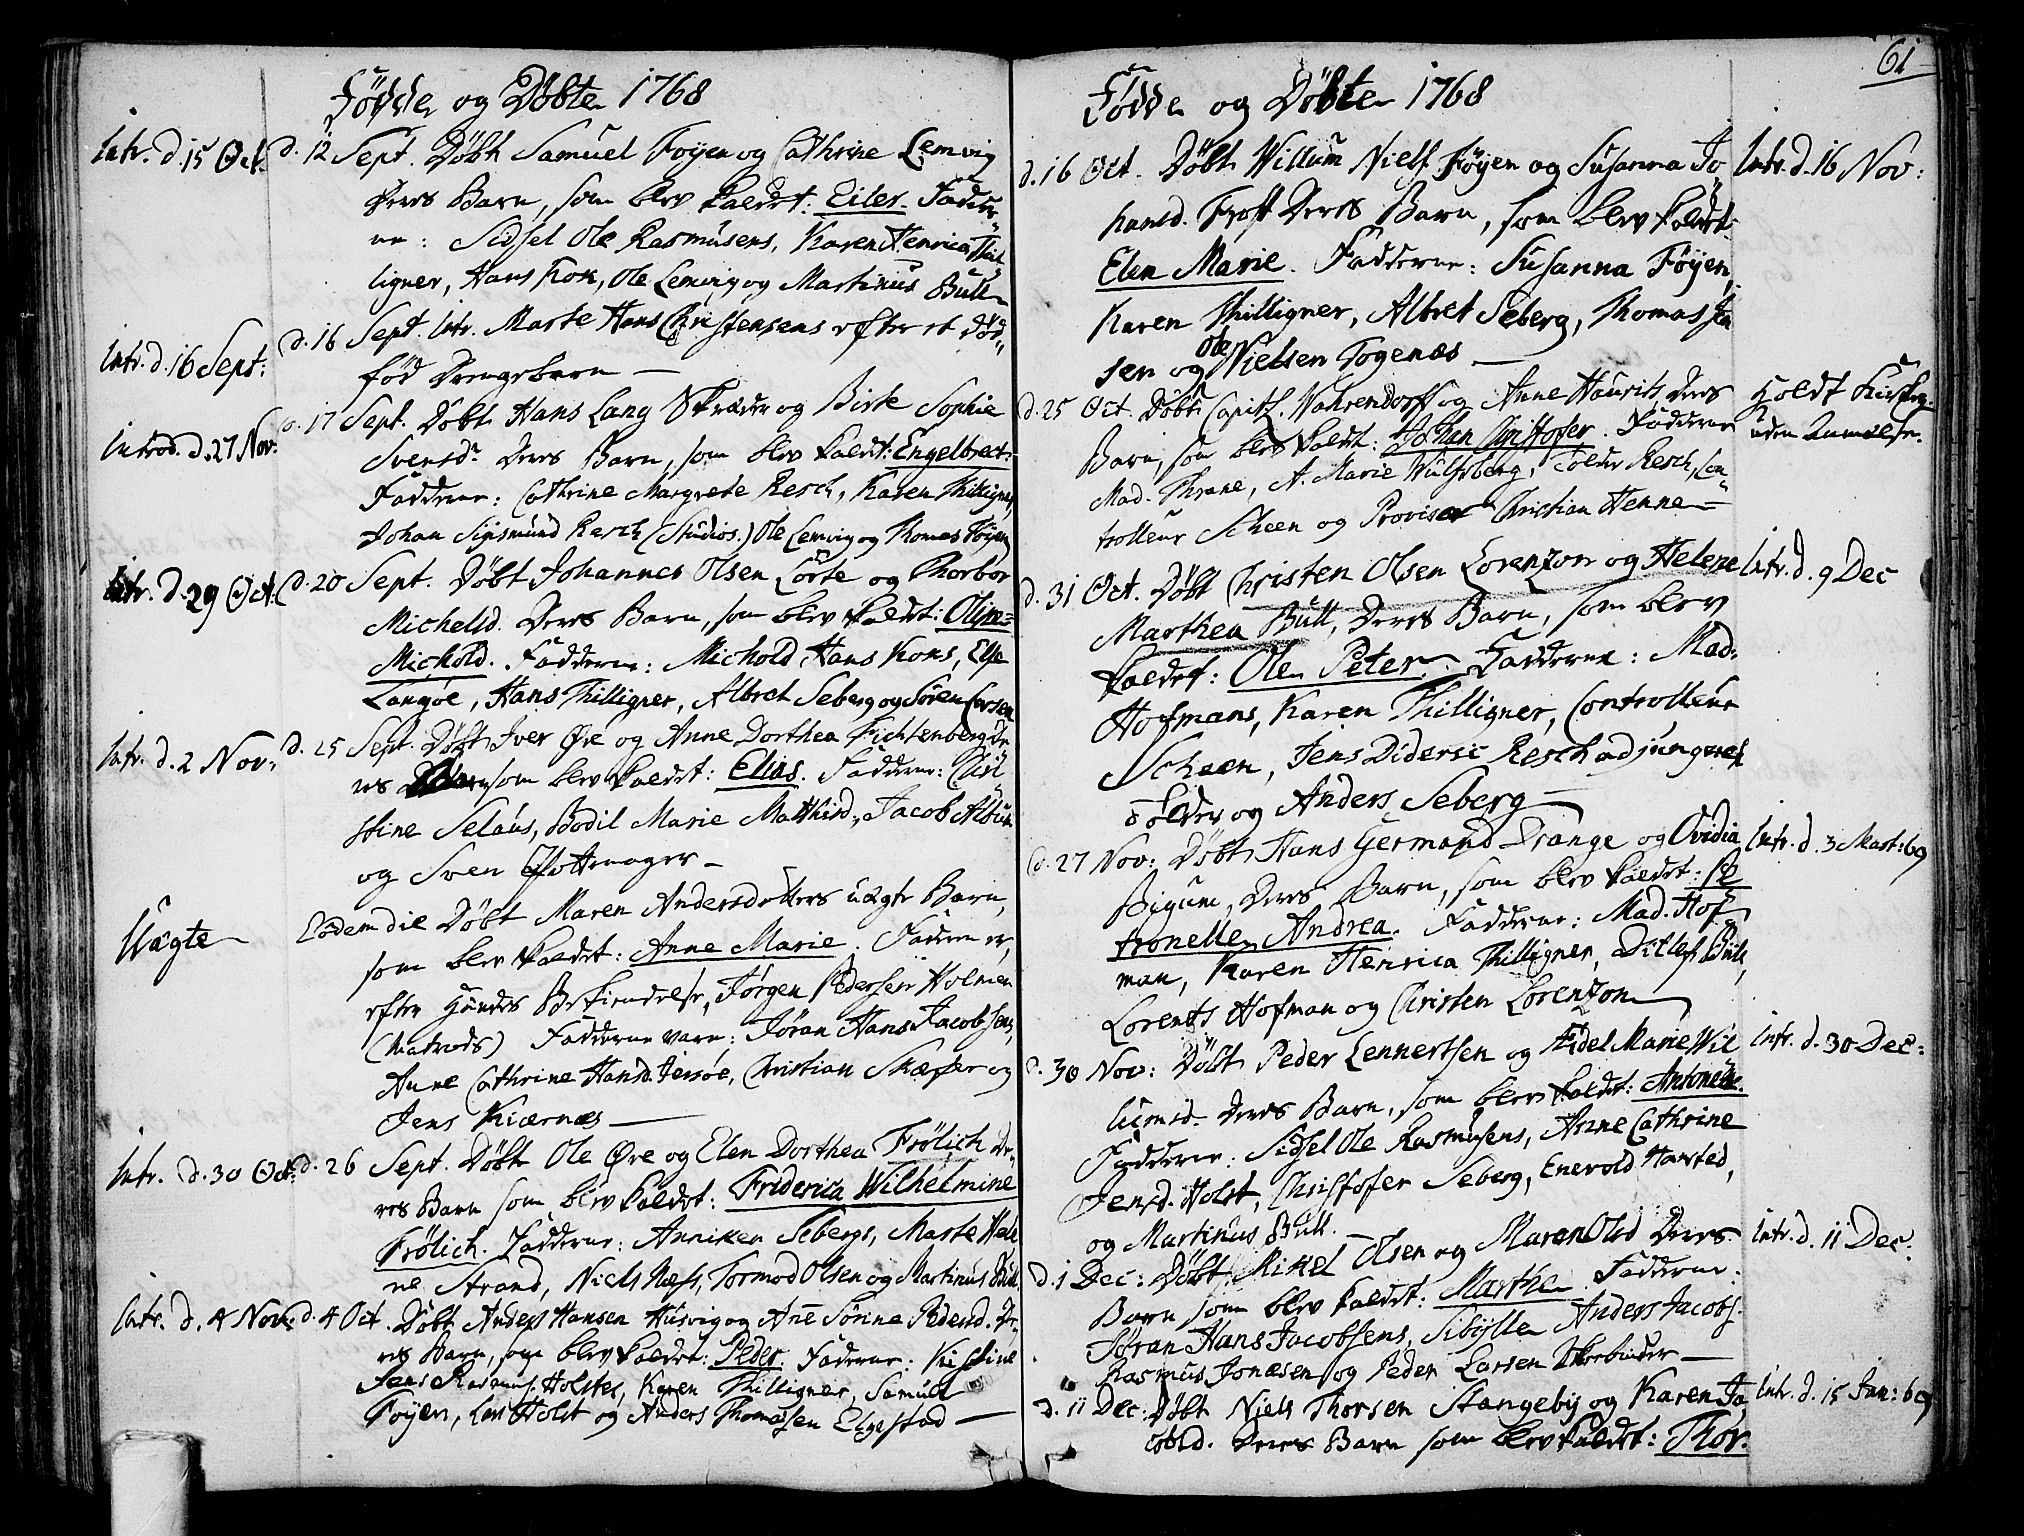 Fødde og Døbte 1768
Intr. d. 15 Oct. d. 12 Sept. Døbt Samuel Foyen og Cathrine Lemvig
Deres Barn, som blev kaldet: Eiler. Fadder„
ne: Sidsel Ole Rasmusens, Karen Henrica Thil„
ligner, Hans Kok, Ole Lemvig og Martinus Bull
Intr. d. 16 Sept: d. 16 Sept. Intr. Marte Hans Christensens efter et død„
fød Drengebarn —
Introd. d. 27 Nov: d. 17 Sept. Døbt Hans Lang Skræder og Birte Sophie
Svensdr. Deres Barn, som blev kaldet: Engelbrect.
Fadderne: Cathrine Margrete Resch, Karen Thilligner,
Johan Sigismund Resch (Studios.) Ole Lemvig og Thomas Føyen
Intr. d. 29 Oct. d. 20 Sept. Døbt Johannes Olsen Lørte og Thorbor
Michelsd. Deres Barn, som blev kaldet: Olim=
Michold. Fadderne: Michold Hans Koks, Else
Langøe, Hans Thilligner, Albret Seberg og Søren Larsen
Intr. d. 2 Nov: d. 25 Sept. Døbt Iver Øre og Anne Dorthea Fichtenberg De„
res som blev kaldet: Elias. Fadderne: Chri„
stine Selaus, Bodil Marie Matthisd., Jacob Album
og Sven Pottemager —
Uægte Eodem die Døbt Maren Andersdotters uægte Barn,
som blev kaldet: Anne Marie. Faderen er,
efter Hendes Bekiendelse, Jørgen Pedersen Holmen
(Matrods) Fadderne vare: Jøran Hans Jacobsens,
Anne Cathrine Hansd. Jersøe, Christian Skæfer og
Jens Kiærnæs —
Intr. d. 30 Oct: d. 26 Sept. Døbt Ole Øre og Elen Dorthea Frølich De„
res Barn som blev kaldet: Friderica Wilhelmine
Frølich. Fadderne: Anniken Sebergs, Marte Hele
ne Strand, Niels Næss, Tormod Olsen og Martinus Bull.
Intr. d. 4 Nov: d. 4 Oct. Døbt Anders Hansen Husvig og Ane Sønne Pedersd. De„
res Barn, som blev kaldet: Peder. Fadderne: Kirstine
Jens Rasmus. Holstes, Karen Thilligner, Samuel
Foyen, Lars Holst og Anders Thomassen Elgestad —
61
Fødde og Døbte 1768
d. 16 Oct. Døbt Willum Niels. Føyen og Susanna Jo„ Intr. d. 16 Nov:
hansd. Frost Deres Barn, som blev kaldet:
Elen Marie. Fadderne: Susanna Føyen,
Karen Thilligner, Albret Seberg, Thomas Jen
sen og Ole Nielsen Togenæs —
d. 25 Oct. Døbt Capith. Wahrendorff og Anne Hauritz Deres Holdt Kirkeg.
Barn, som blev kaldet: Johan Christofer. Fadderne uden Anmelse.
Mad. Thrane, A. Marie Wulfsberg, Tolder Resch, Con„
trolleur Scheen og Provisor Christian Henne —
d. 31 Oct. Døbt Christen Olsen Lorenzon og Helene Intr. d. 9 Dec
Marthea Bull, Deres Barn, som blev
kaldet: Ole Peter. Fadderne: Mad.
Hofmans, Karen Thilligner, Controlleur
Scheen, Jens Dideric Resch adjungeret
Tolder og Anders Seberg —
d. 27 Nov: Døbt Hans Germand Prange og Ovidia Intr. d. 3 Mart: 69
Bigum, Deres Barn, som blev kaldet: Pe
tronelle Andrea. Fadderne: Mad. Hof„
man, Karen Henrica Thilligner, Ditlef Bull,
Lorents Hofman og Christen Lorenzon
d. 30 Nov: Døbt Peder Lennertsen og Fidel Marie Wil Intr. d. 30 Dec:
lumsd. Deres Barn, som blev kaldet: Antonette.
Fadderne: Sidsel Ole Rasmusens, Anne Cathrine
Jensd. Holst, Christofer Seberg, Enevold Harsted,
og Martinus Bull.
d. 1 Dec: Døbt Mikkel Olsen og Maren Olsd Deres Intr. d. 11 Dec:
Barn som blev kaldet: Marthe. Fadderne:
Jøran Hans Jacobsens, Sibylle Anders Jacobs.
Rasmus Jonæsen og Peder Larsen Skoebinder —
d. 11 Dec: Døbt Niels Thorsen Stangeby og Karen Ja„ Intr. d. 15 Jan: 69
cobsd. Deres Barn som blev kaldet: Thor.